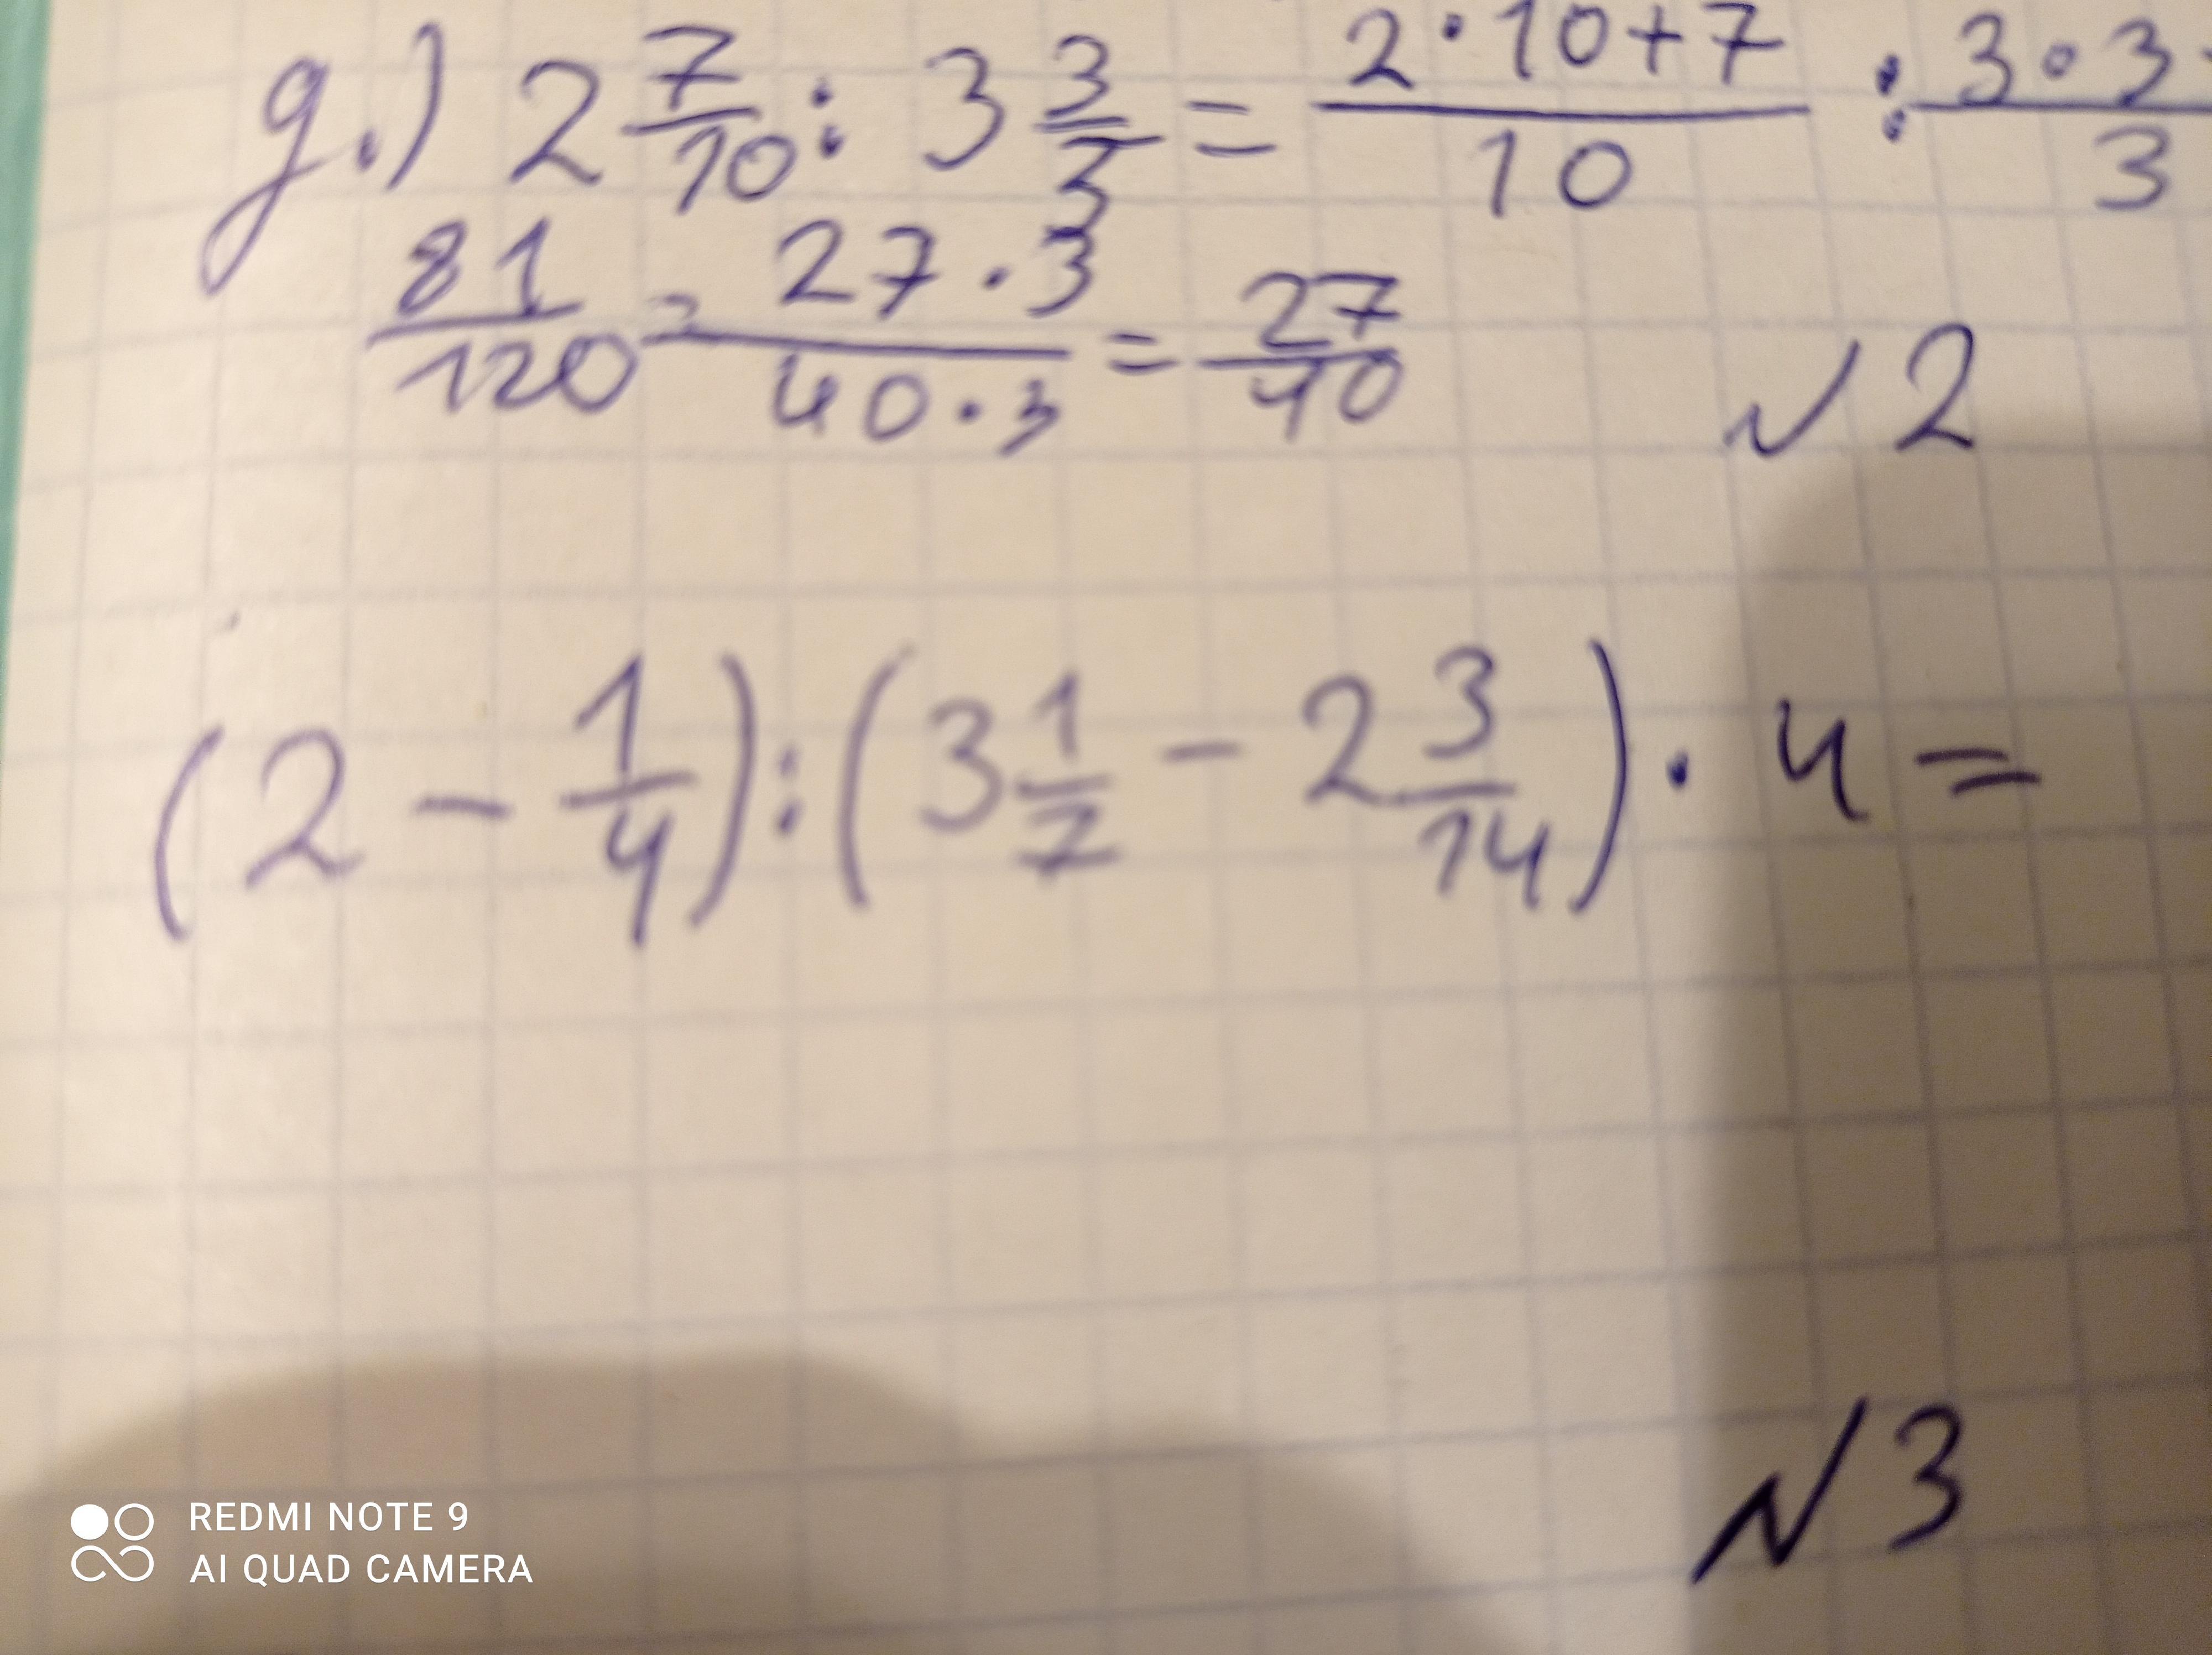 g.) 2 7/10 : 3 3/3 = 2·10+7/10 : 3·3/3
81/120 = 27·3/40·3 = 27/40
№2
(2 - 1/4) : (3 1/7 - 2 3/14) · 4 =
№3
REDMI NOTE 9
AI QUAD CAMERA